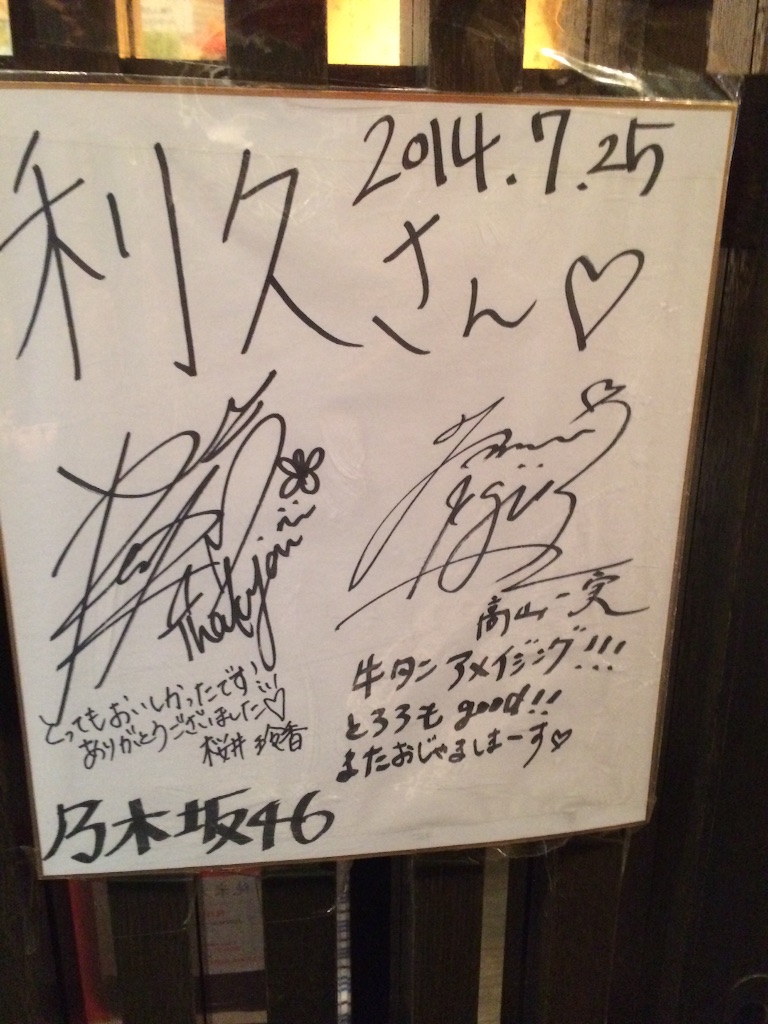 2014.7.25
利久さん♡
とってもおいしかったです!!!
ありがとうございました♡
桜井玲香
高山一実
牛タンアメイジング!!!
とろろもgood!!
またおじゃましまーす♡
乃木坂46